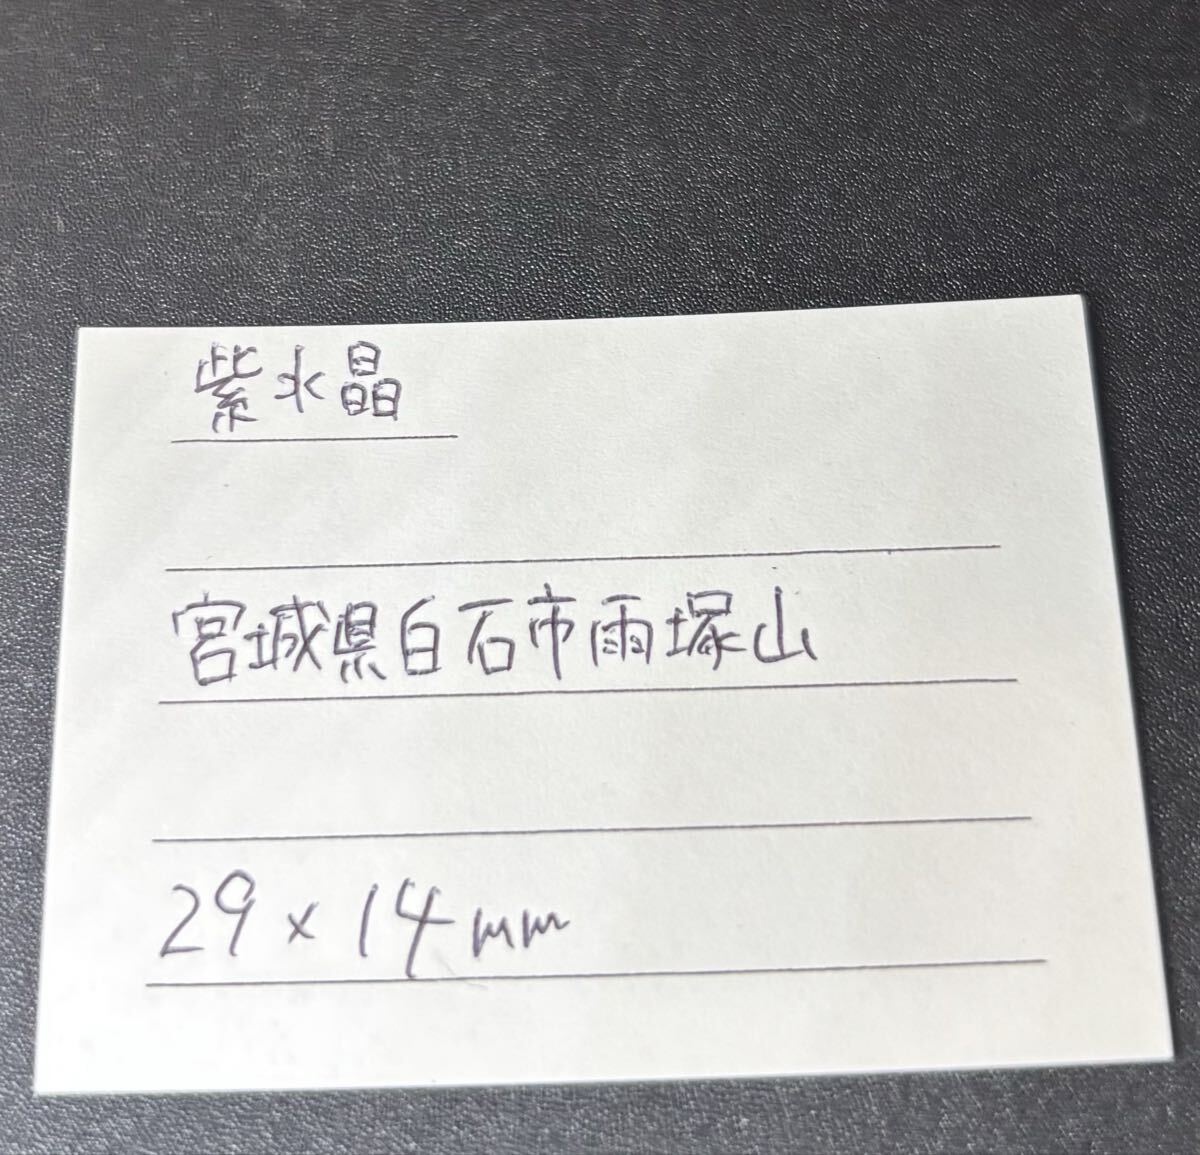 紫水晶
宮城県白石市雨塚山
29 × 14 mm